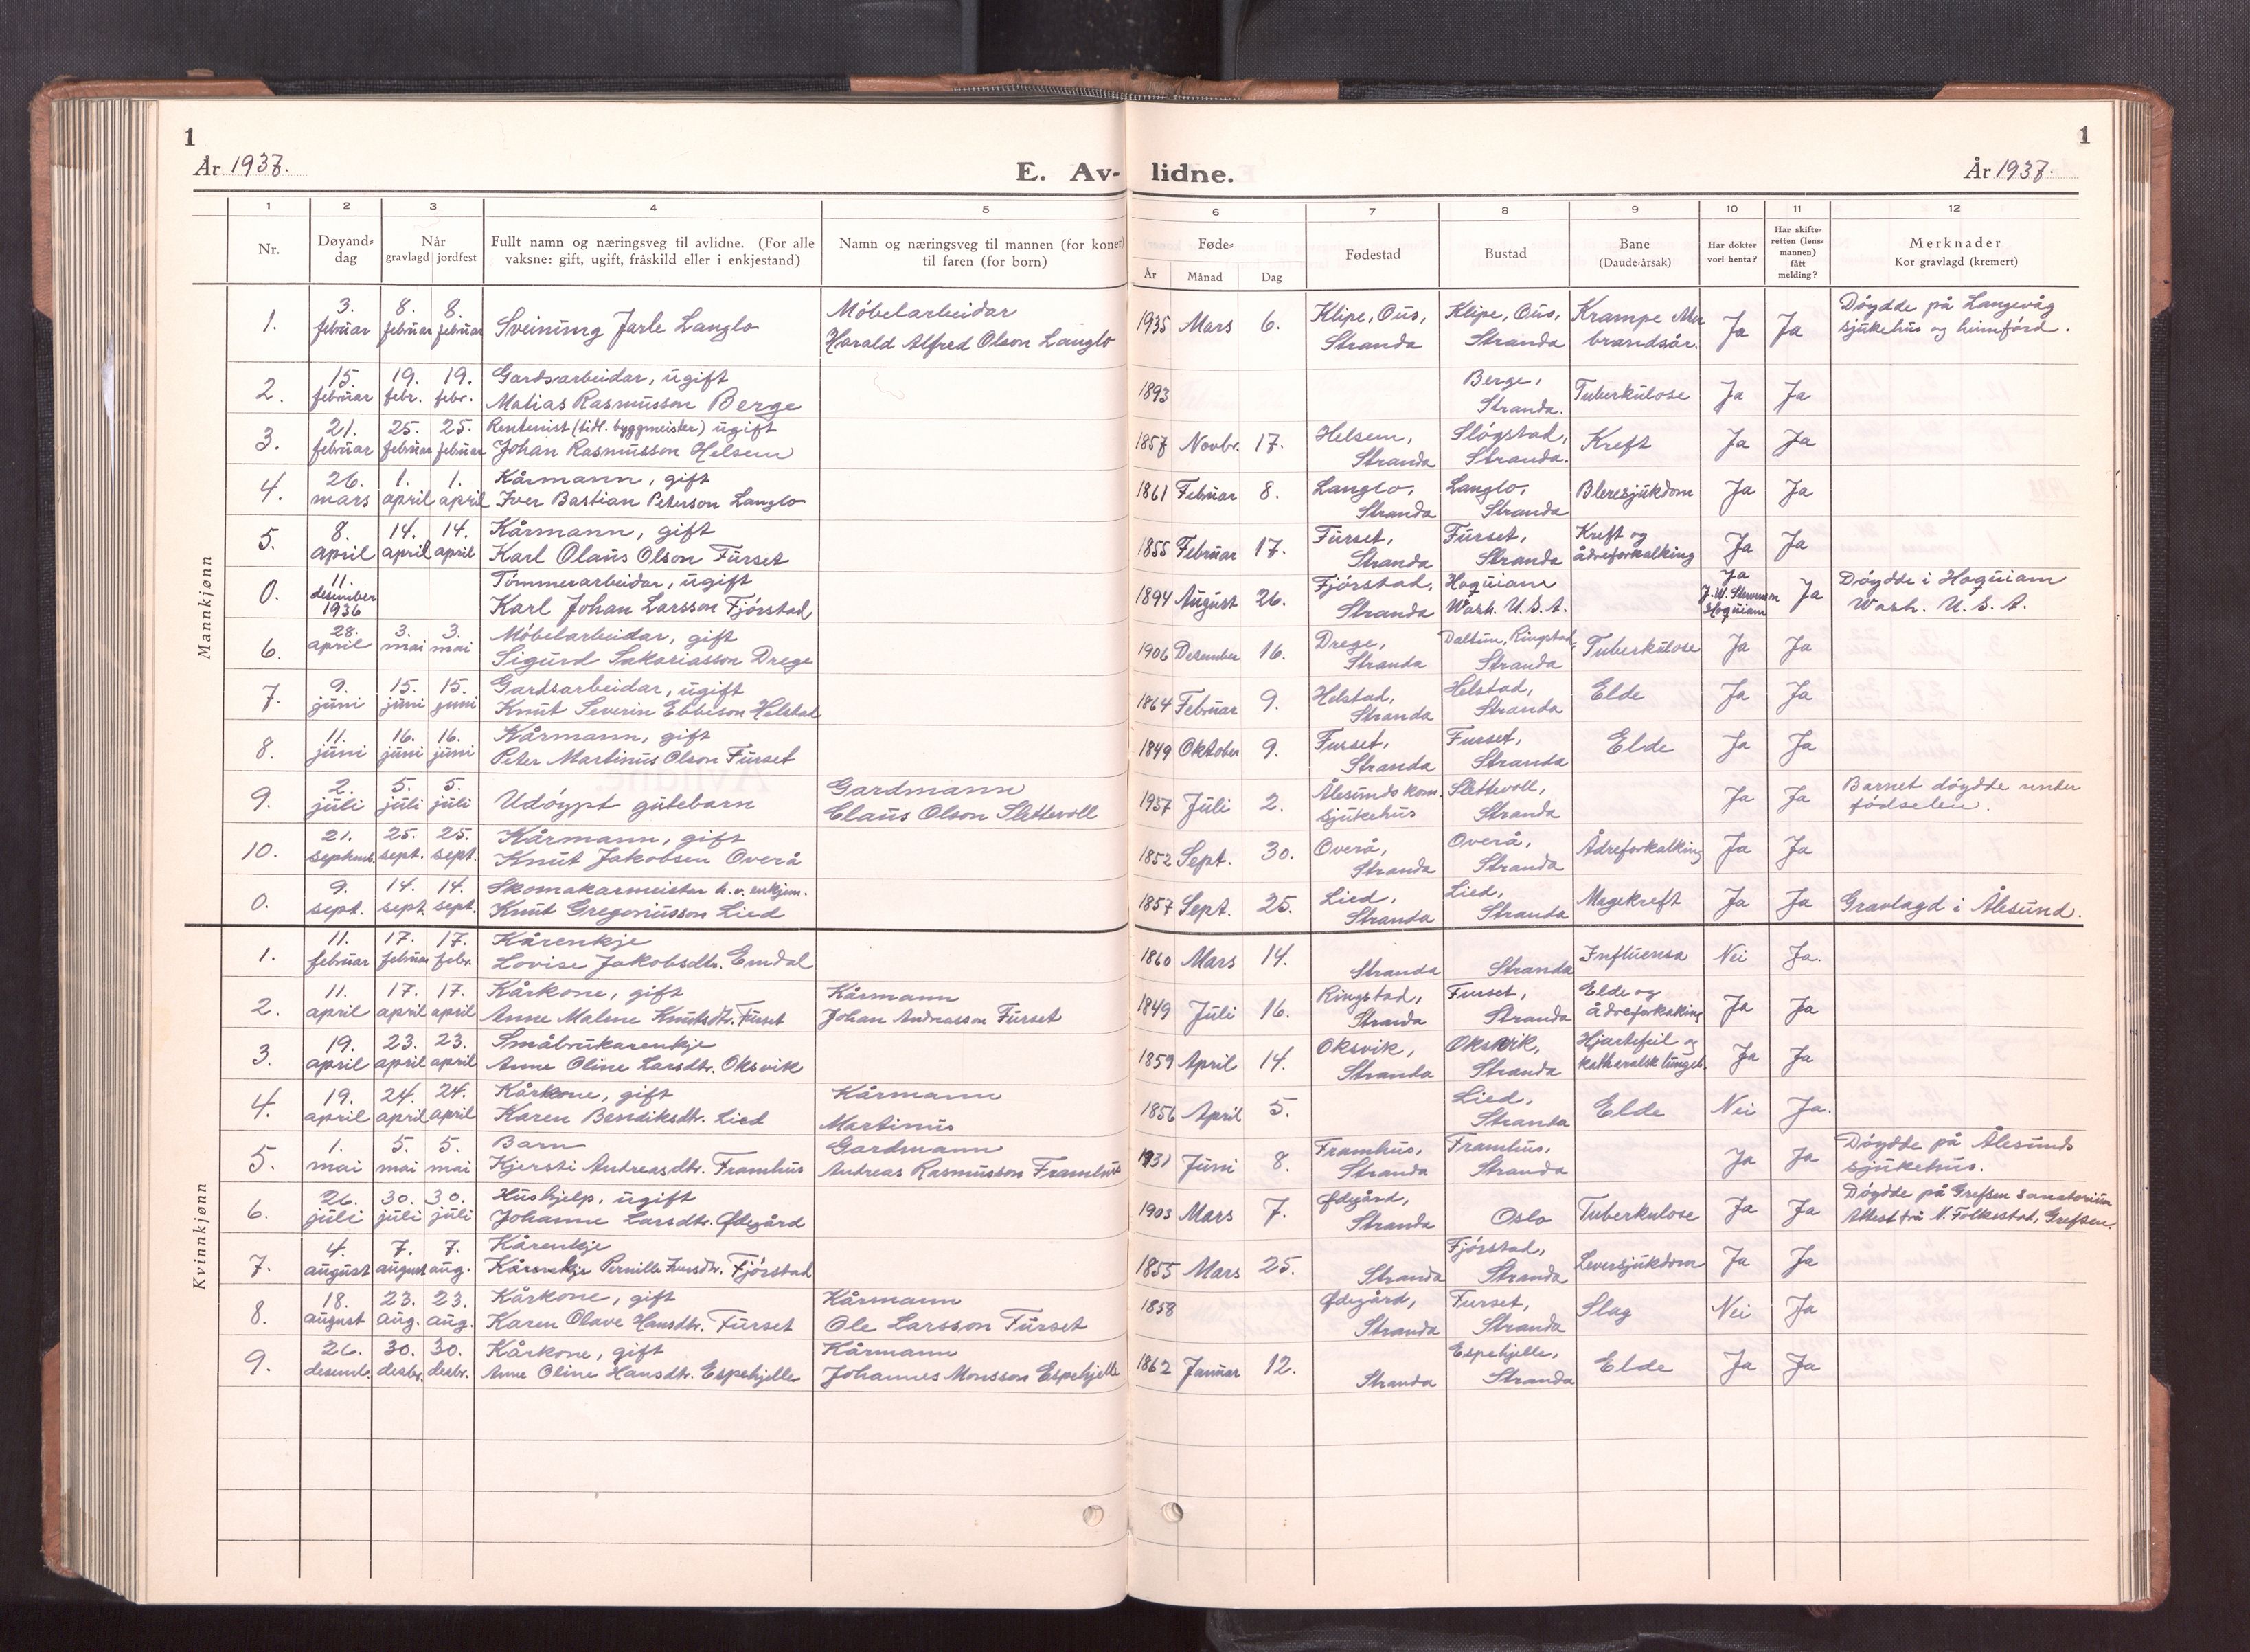 1
År 1937.
E. Av-
1 2 3 4 5
Nr.
Døyand-
dag
Når
gravlagd jordfest
Fullt namn og næringsveg til avlidne. (For alle
vaksne: gift, ugift, fråskild eller i enkjestand)
Namn og næringsveg til mannen (for koner)
til faren (for born)
1
lidne.
År 1937.
6 7 8 9 10 11 12
Føde-
År Månad Dag
Fødestad
Bustad
Bane
(Daude-årsak)
Har dokter
vori henta?
Har skifte-
retten (lens-
mannen)
fått
melding?
Merknader
Kor gravlagd (kremert)
Mannkjønn
3. 8. 8. Møbelarbeidar Klipe, Ous, Klipe, Ous, Krampe Døydde på Langevåg
1. februar februar februar Sveinung Jarle Langlo Harald Alfred Olson Langlo 1935 Mars 6. Stranda Stranda brandsår. Ja Ja sjukehus og heimførd.
15. 19. 19. Gardsarbeidar, ugift Berge,
2. februar febr. febr. Matias Rasmusson Berge 1893 Stranda. Tuberkulose Ja Ja
21. 25. 25. Rentenist (tidl. byggmeister) ugift Helsem, Sløgstad,
3. februar februar februar Johan Rasmusson Helsem 1857 Novbr. 17. Stranda Stranda. Kreft Ja Ja
26. 1. 1. Kårmann, gift Langlo, Langlo,
4. mars april april Iver Bastian Peterson Langlo 1861 Februar 8. Stranda Stranda Bleresjukdom Ja Ja
8. 14. 14. Kårmann, gift Furset, Furset, Kreft og
5. april april april Karl Olaus Olson Furset 1855 Februar 17. Stranda Stranda ådreforkalking Ja Ja
11. Tømmerarbeidar, ugift Fjørstad, Hoquiam Ja Døydde i Hoquiam
0. desember Karl Johan Larsson Fjørstad 1894 August 26. Stranda Wash. U.S.A. J.W. Stevenson Ja Wash. U.S.A.
1936 Hoquiam
28. 3. 3. Møbelarbeidar, gift Drege, Daltun, Ringstad,
6. april mai mai Sigurd Sakariasson Drege 1906 Desember 16. Stranda Stranda Tuberkulose Ja Ja
9. 15. 15. Gardsarbeidar, ugift Helstad, Helstad,
7. juni juni juni Knut Severin Ebbeson Helstad 1864 Februar 9. Stranda Stranda Elde Ja Ja
11. 16. 16. Kårmann, gift Furset, Furset,
8. juni juni juni Peter Martinus Olson Furset 1849 Oktober 9. Stranda Stranda Elde Ja Ja
2. 5. 5. Gardmann Ålesunds kom. Slettevoll, Barnet døydde under
9. juli juli juli Udøypt gutebarn Claus Olson Slettevoll 1937 Juli 2. sjukehus Stranda Ja Ja fødselen.
21. 25. 25. Kårmann, gift Overå, Overå,
10. septemb. sept. sept. Knut Jakobsen Overå 1852 Sept. 30. Stranda Stranda Ådreforkalking Ja Ja
9. 14. 14. Skomakarmeistar h.v. enkjem. Lied, Lied,
0. sept. sept. sept. Knut Gregoriusson Lied 1857 Sept. 25. Stranda Stranda Magekreft Ja Ja Gravlagd i Ålesund.
Kvinnkjønn
11. 17. 17. Kårenkje
1. februar februar febr. Lovise Jakobsdtr. Emdal 1860 Mars 14. Stranda Stranda Influensa Nei Ja.
11. 17. 17. Kårkone, gift Kårmann Ringstad, Furset, Elde og
2. april april april Anne Malene Knutsdtr. Furset Johan Andreasson Furset 1849 Juli 16. Stranda Stranda ådreforkalking Ja Ja
19. 23. 23. Småbrukarenkje Oksvik, Oksvik, Hjartefeil og
3. april april april Anne Oline Larsdtr. Oksvik 1859 April 14. Stranda Stranda katharalsk lungeb. Ja Ja
19. 24. 24. Kårkone, gift Kårmann Lied,
4. april april april Karen Bendiksdtr. Lied Martinus 1856 April 5. Stranda Elde Nei Ja.
1. 5. 5. Barn Gardmann Framhus, Framhus, Døydde på Ålesunds
5. mai mai mai Kjersti Andreasdtr. Framhus Andreas Rasmusson Framhus 1931 Juni 8. Stranda Stranda Ja Ja sjukehus.
26. 30. 30. Hushjelp, ugift Ødegård, Døydde på Grefsen sanatorium
6. juli juli juli Johanne Larsdtr. Ødegård 1903 Mars 7. Stranda Oslo Tuberkulose Ja Ja Attest frå N. Folkestad, Grefsen.
4. 7. 7. Kårenkje Fjørstad,
7. august august aug. Kårenkje Pernille Fjørstad 1855 Mars 25. Stranda Stranda Leversjukdom Ja Ja
18. 23. 23. Kårkone, gift Kårmann Ødegård, Furset,
8. august aug. aug. Karen Olave Hansdtr. Furset Ole Larsson Furset 1858 Stranda Stranda Slag Nei Ja
26. 30. 30. Kårkone, gift Kårmann Espehjelle,
9. desemb. desbr. desbr. Anne Oline Hansdtr. Espehjelle Johannes Monsson Espehjelle 1862 Januar 12. Stranda Stranda Elde Ja Ja